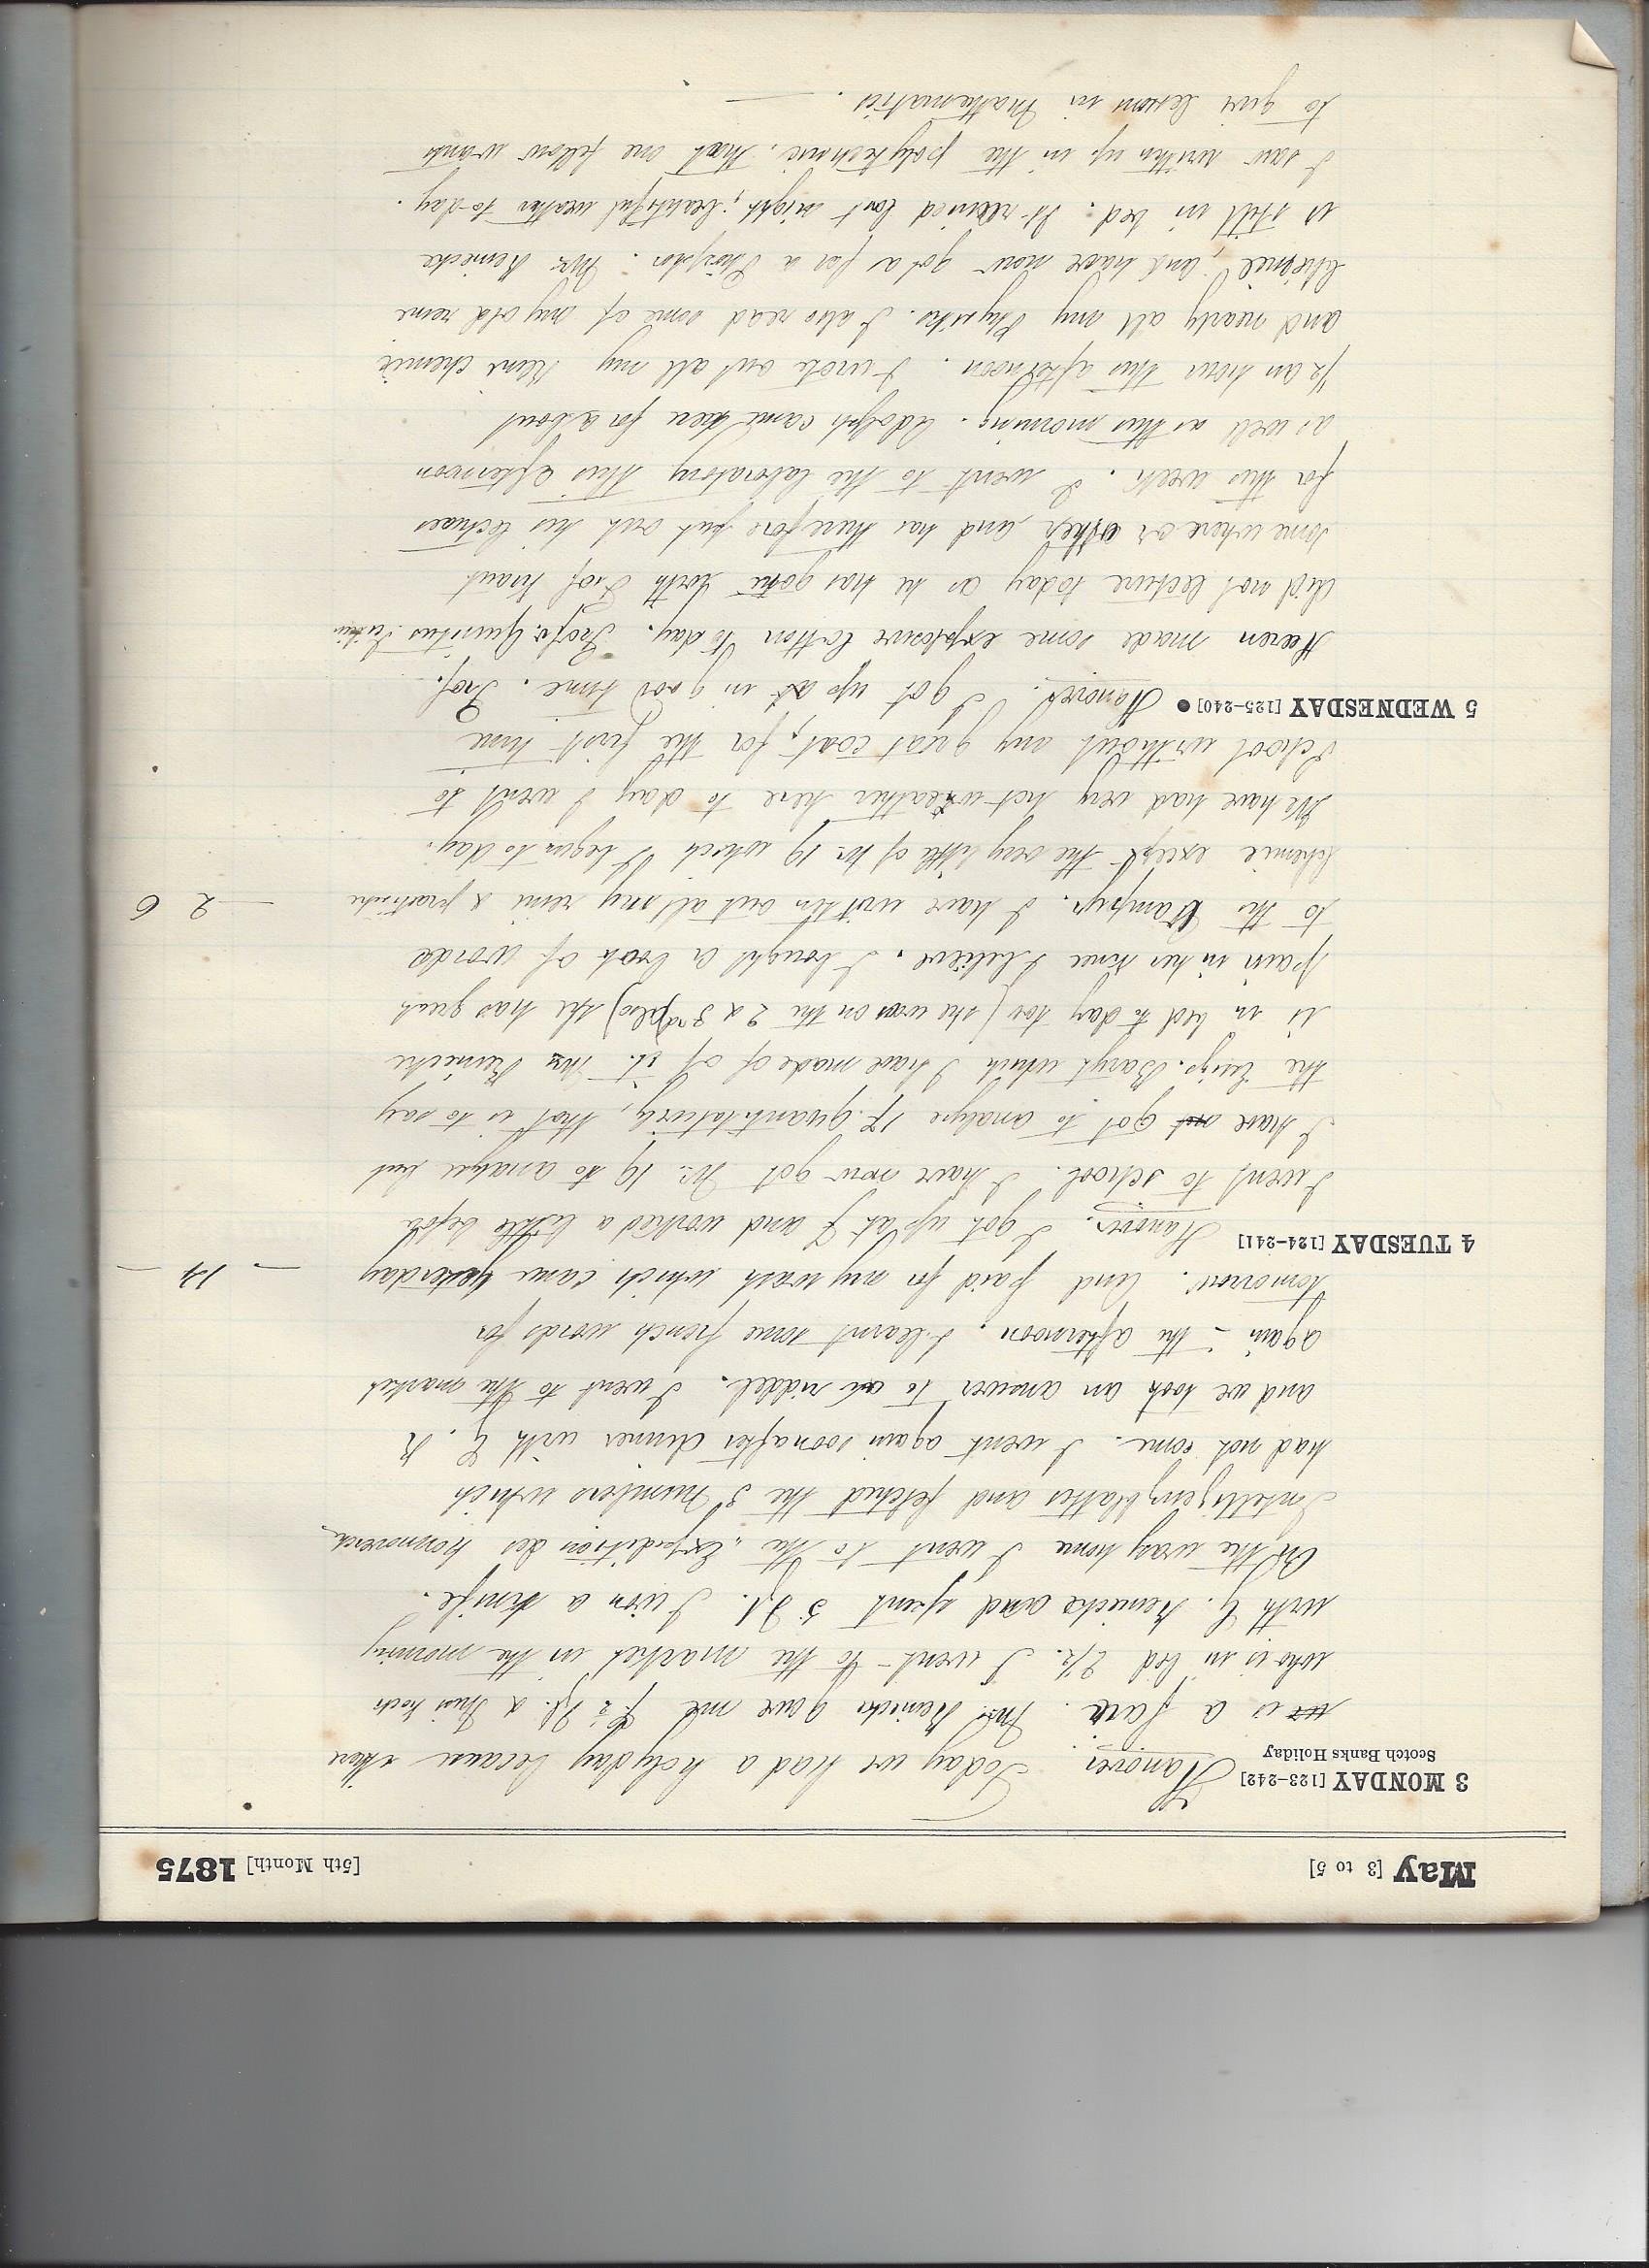 May [3 to 5] [5th Month] 1875
3 MONDAY [123-242] Hanover. Today we had a holyday because there
Scotch Banks Holiday
is a fair. Mrs. Reinicke gave me &
who is in bed 2½. I went to the market in the morning
with G. Reinicke and spent 5 I won a knife.
On the way home I went to the „Expedition des hannoversch
Intelligenzblattes and fetched the 3 numbers which
had not come. I went again soon after dinner with G. R
and we took an answer to a riddel. I went to the market
again in the afternoon. I learnt some french words for
tomorrow. And paid for my wash which came yesterday — 14 —
4 TUESDAY [124-241] Hanover. I got up at 7 and worked a little before
I went to school. I have now got No. 19 to analyse but
I have not got to analyse 17 quantitatively, that is to say
the Baryt which I have made of it. Mrs Reinicke
is in bed to day too (she was on the 2 & 3rd also) she has great
pain in her knee I believe. I bought a book of words
to the Vampyr. I have written out all my reine & praktische — 2 6
Chemie except the very little of No. 19 which I began to day.
We have had very hot weather here to day I went to
School without any great coat, for the first time
5 WEDNESDAY [125-240] ● Hanover. I got up at in good time. Prof.
Heeren made some explosive Cotton to day. Prof. v. Quintus
did not lecture today as he has gone with Prof Kraut
some where or other and has therefore put out his lectures
for this week. I went to the laboratory this afternoon
as well as this morning. Adolph came here for about
½ an hour this afternoon. I wrote out all my Chemie
and nearly all my Physiks. I also read some of my old reine
Chemie, and have now got as far a Phosphor. Mrs Reinicke
is still in bed. It rained last night; beautiful weather to-day.
I saw written up in the polytechnic, that one fellow wants
to give lessons in Mathematics.